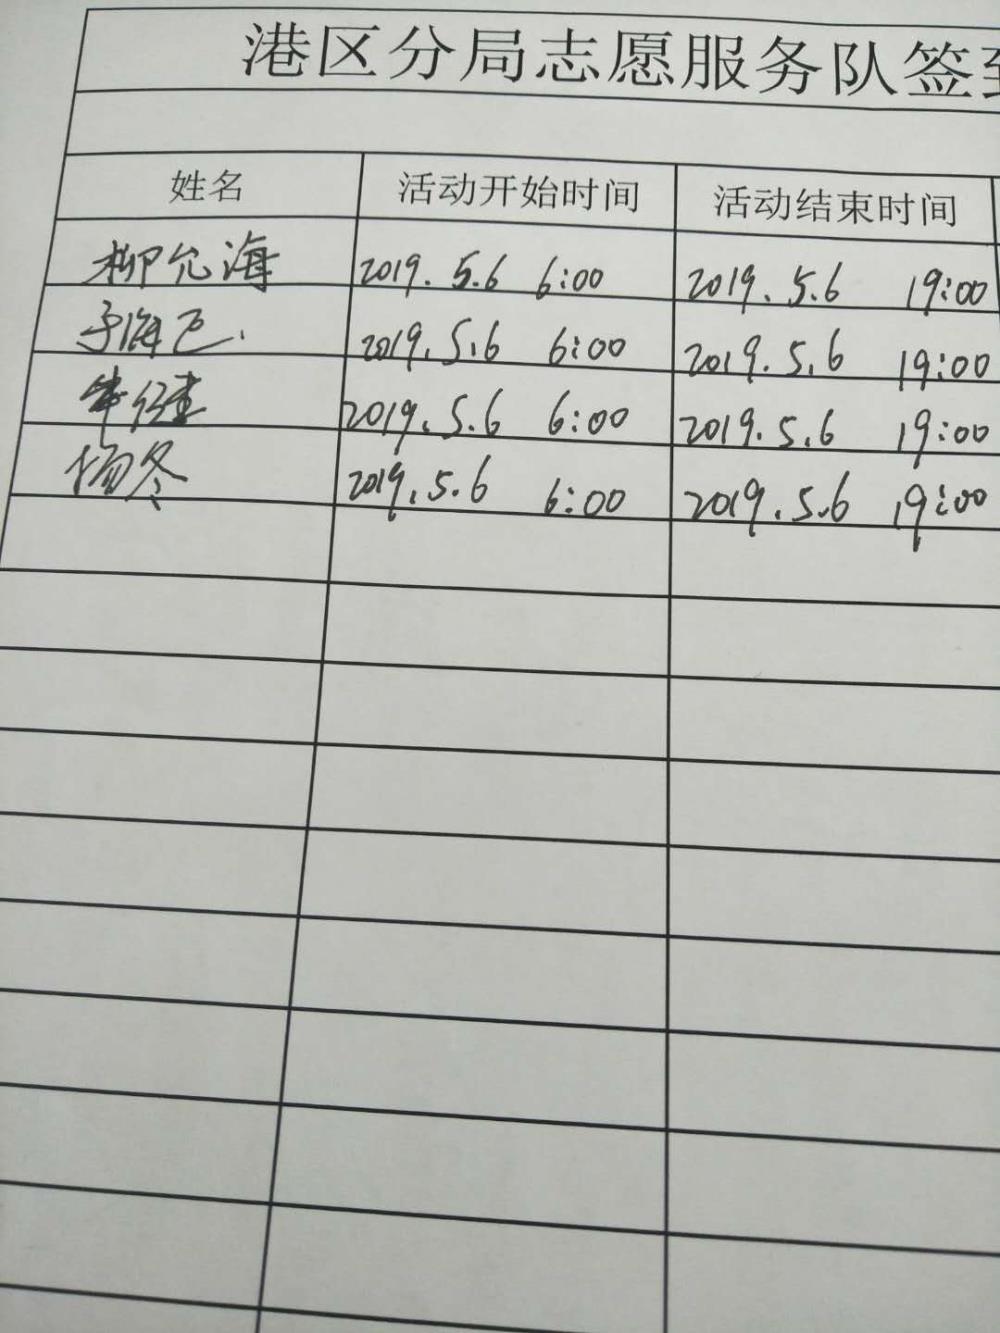 港区分局志愿服务队签到
姓名 活动开始时间 活动结束时间
柳允海 2019.5.6 6:00 2019.5.6 19:00
于海飞 2019.5.6 6:00 2019.5.6 19:00
2019.5.6 6:00 2019.5.6 19:00
杨冬 2019.5.6 6:00 2019.5.6 19:00